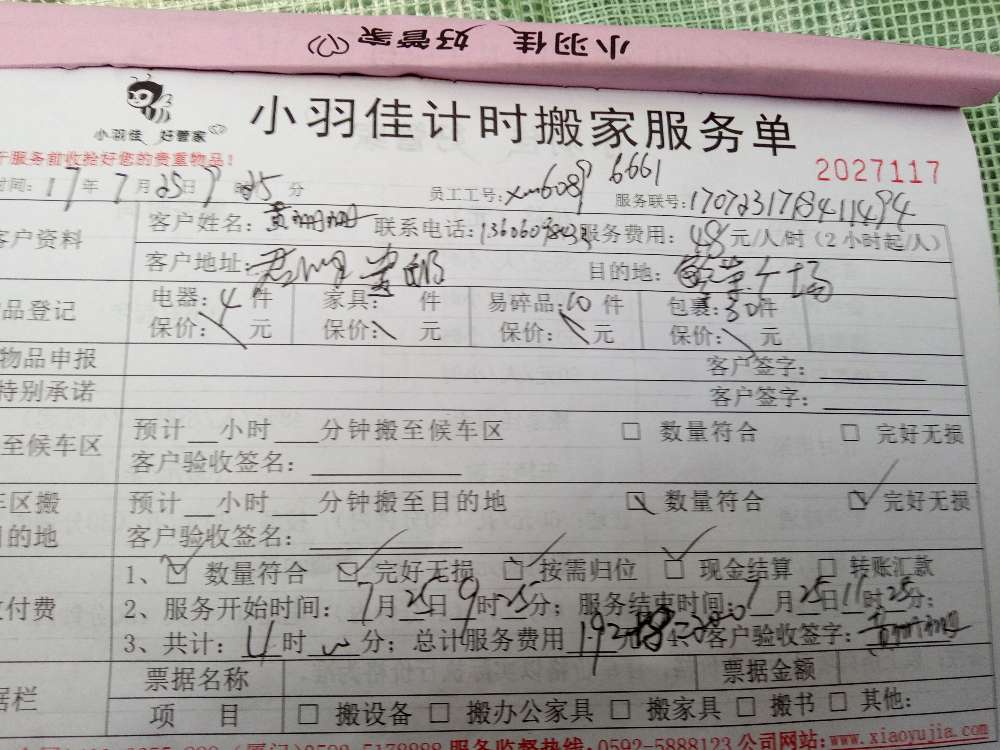 小羽佳 好管家
小羽佳 好管家
小羽佳计时搬家服务单
于服务前收拾好您的贵重物品!
2027117
时间: 17年7月25日9时25分 员工工号:xm6089 6661 服务联号:170723178411494
客户资料
客户姓名: 联系电话: 服务费用: 48元/人/时（2小时起/人）
客户地址: 目的地:
品登记
电器: 4件 家具: 件 易碎品: 10件 包裹: 30件
保价: 元 保价: 元 保价: 元 保价: 元
物品申报 客户签字:
特别承诺 客户签字:
至候车区
预计 小时 分钟搬至候车区 □ 数量符合 □ 完好无损
客户验收签名:
车区搬目的地
预计 小时 分钟搬至目的地 □ 数量符合 □ 完好无损
客户验收签名:
付费
1、□ 数量符合 □ 完好无损 □ 按需归位 □ 现金结算 □ 转账汇款
2、服务开始时间: 7月25日9时25分; 服务结束时间: 7月25日11时25分;
3、共计: 4时 分; 总计服务费用 192 元 4、客户验收签字:
据栏
票据名称 票据金额
项 目 □ 搬设备 □ 搬办公家具 □ 搬家具 □ 搬书 □ 其他:
服务监督热线:0592-5888123 公司网站:www.xiaoyujia.com